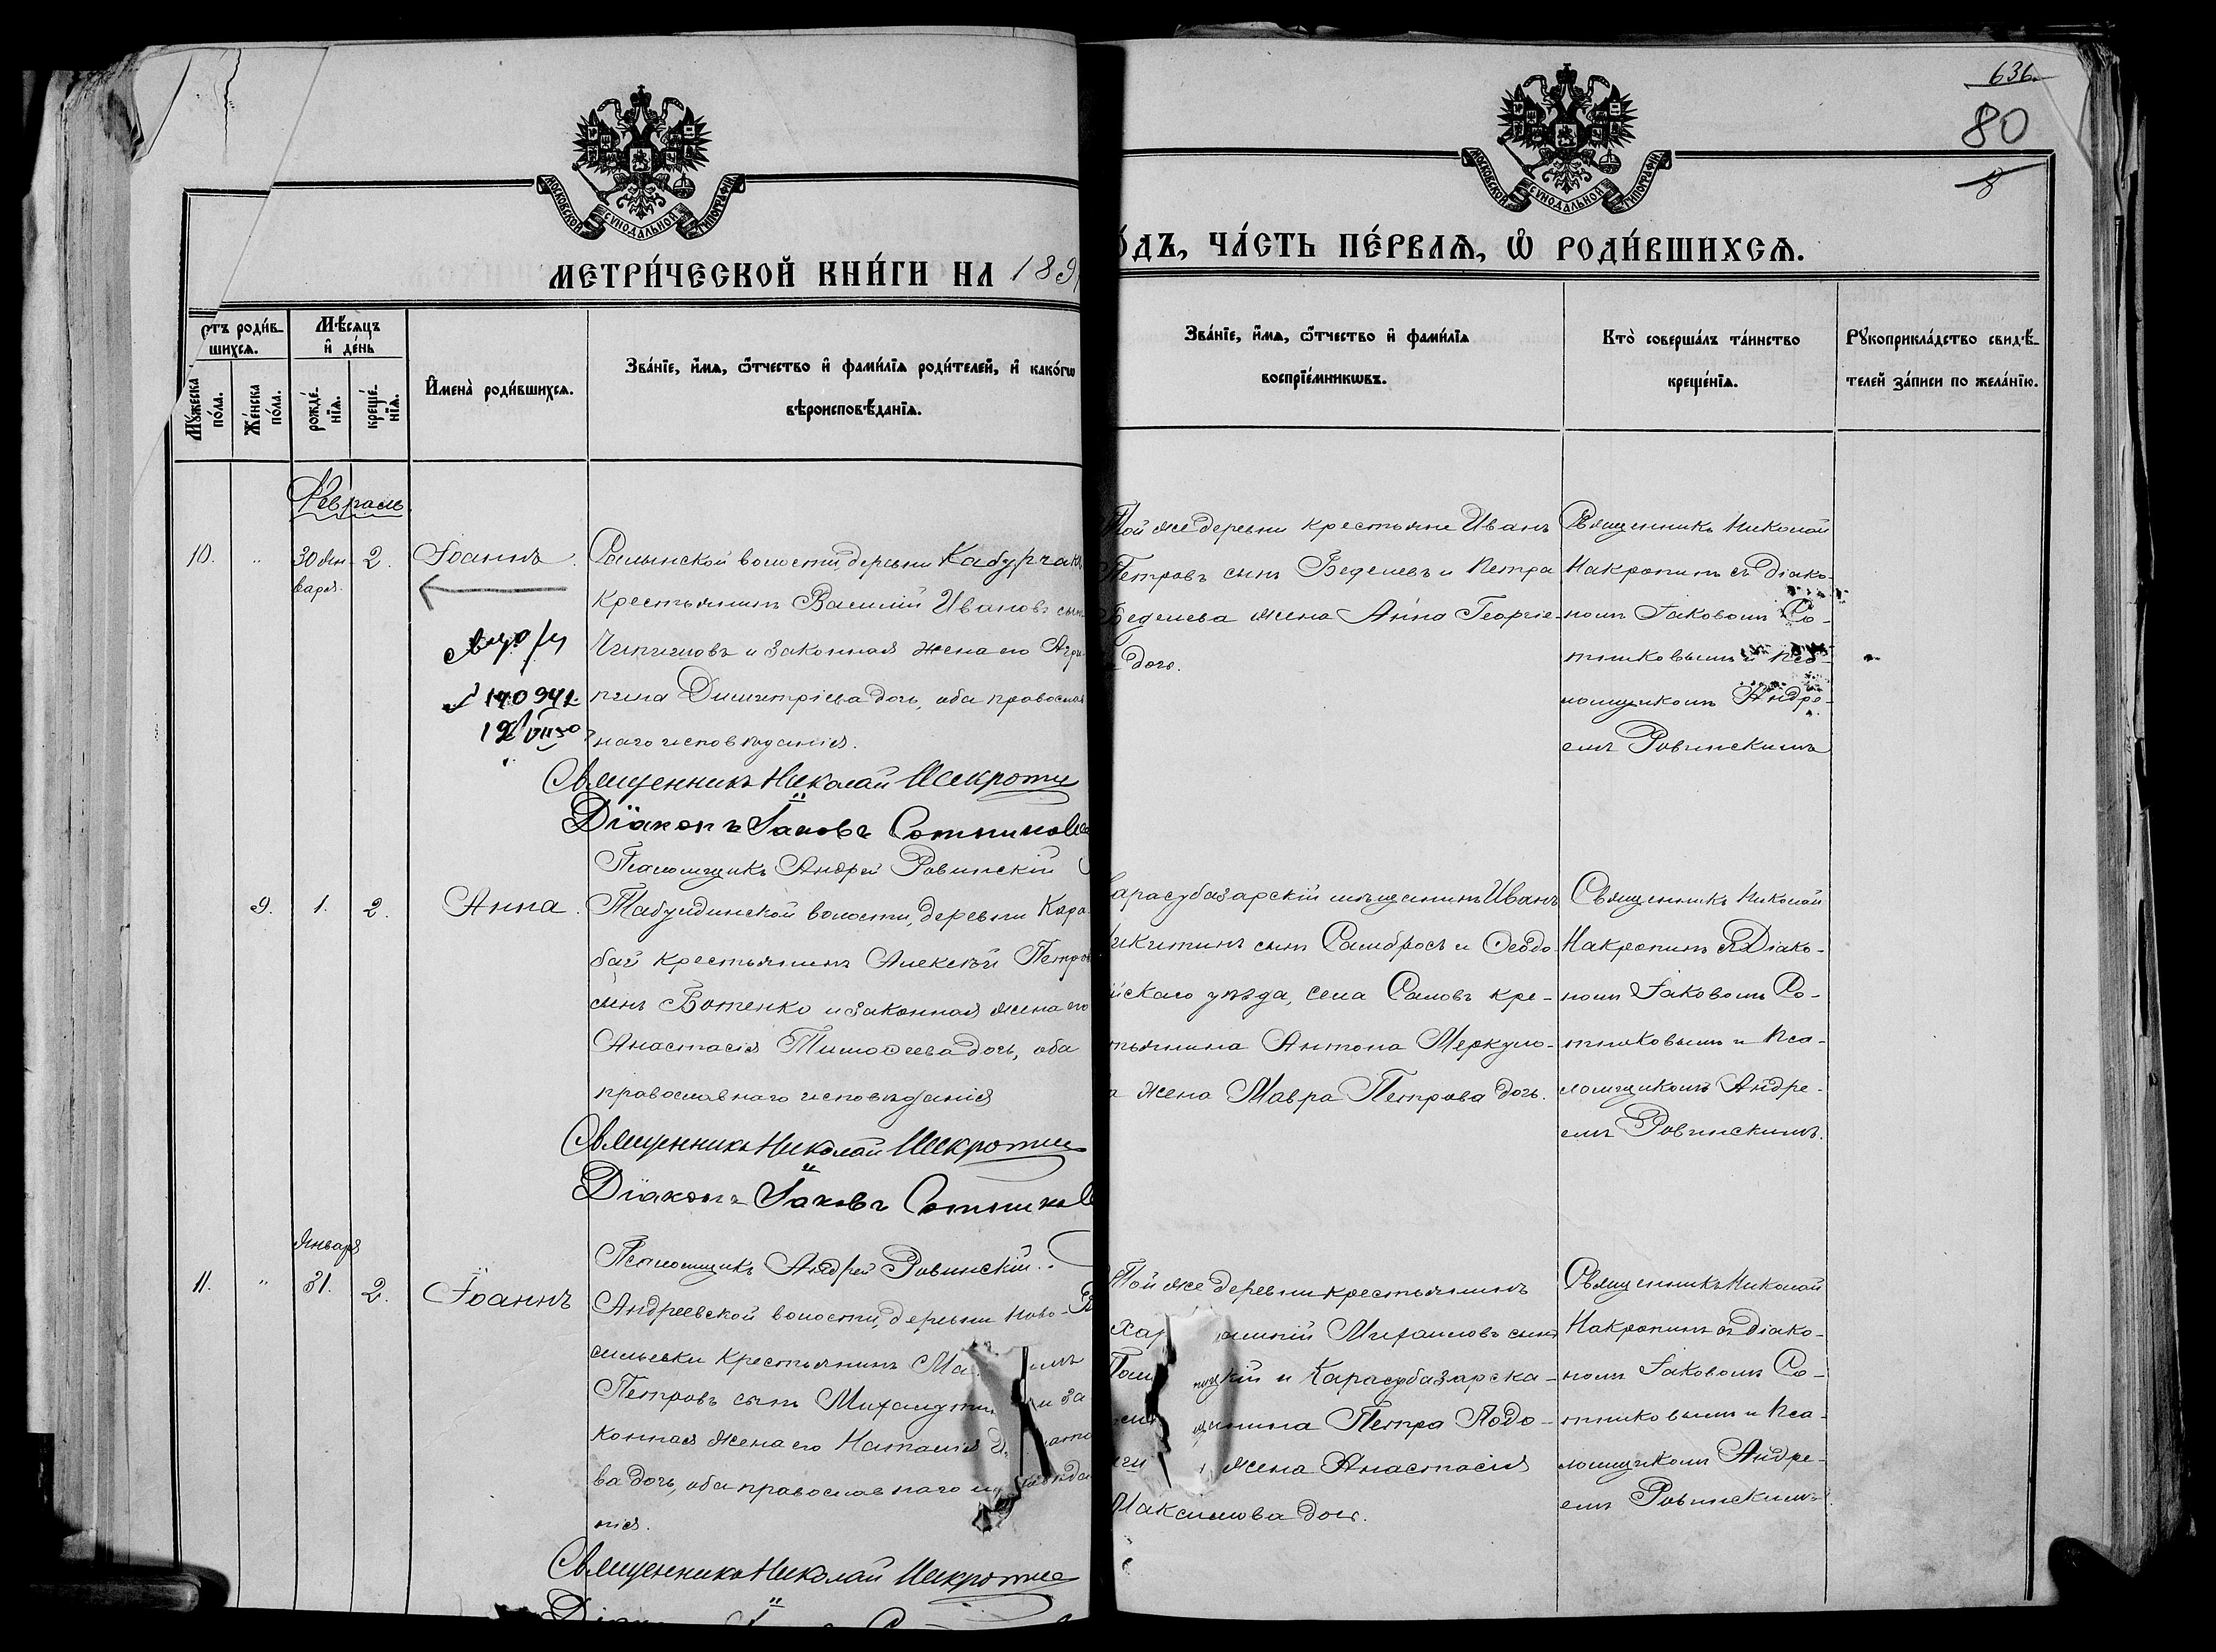 636
80
8
МОСКОВСКОЙ СѴНОДАЛЬНОЙ ТИПОГРАФІИ
МОСКОВСКОЙ СѴНОДАЛЬНОЙ ТИПОГРАФІИ
МЕТРИ́ЧЕСКОЙ КНИ́ГИ НА 189
О́ДЪ, ЧА́СТЬ ПЕ́РВАѦ, Ѡ҆ РОДИ́ВШИХСѦ.
етъ роди́в-
шихсѧ.
Мꙋжеска по́ла.
Же́нска по́ла.
Мѣ́сѧцъ
и҆ де́нь
рожде́-
нїѧ.
креще́-
нїѧ.
И҆мена̀ роди́вшихсѧ.
Зва́нїе, и҆́мѧ, ѻ҆́тчество и҆ фами́лїѧ роди́телей, и҆ како́гѡ
вѣроисповѣ́данїѧ.
Зва́нїе, и҆́мѧ, ѻ҆́тчество и҆ фами́лїѧ
воспрїе́мникѡвъ.
Кто̀ соверша́лъ та́инство
креще́нїѧ.
Рꙋкоприкла́дство свидѣ́-
телей за́писи по жела́нїю.
Февраль
10. " 30 Ян-
варя.
2.
Іоаннъ.
140942
волости, деревни Кабурчакъ
крестьянинъ Василій Ивановъ сынъ
и законная жена его Агри-
пина Димитріева дочь, оба православ
наго исповѣданія.
Священникъ Николай
Діаконъ Іаковъ Сотниковъ
Псаломщикъ Андрей Ровинскій
Той же деревни крестьяне Иванъ
Петровъ сынъ Беделевъ и Петра
Беделева жена Анна Георгіе-
дочь.
Священникъ Николай
Накропинъ съ Діако-
номъ Іаковомъ Со-
тниковымъ и Пса-
ломщикомъ Андре-
емъ Ровинскимъ
9. 1. 2.
Анна.
Табулдинской волости, деревни Кара-
бай крестьянинъ Алексѣй Петровъ
сынъ Вотенко и законная жена его
Анастасія Тимоѳеева дочь, оба
православнаго исповѣданія
Священникъ Николай
Діаконъ Іаковъ Сотниковъ
Псаломщикъ Андрей Ровинскій.
арасубазарскій мѣщанинъ Иванъ
икитинъ сынъ Самбросъ и Ѳеодо-
йскаго уѣзда, села Саловъ кре-
тьянина Антона Меркуло-
а жена Мавра Петрова дочь.
Священникъ Николай
Накропинъ съ Діако-
номъ Іаковомъ Со-
тниковымъ и Пса-
ломщикомъ Андре-
емъ Ровинскимъ.
Января
11. " 31. 2.
Іоаннъ
Андреевской волости, деревни Ново-
сильевки крестьянинъ
Петровъ сынъ и за
конная жена его Наталія
ва дочь, оба православнаго
нія.
Священникъ Николай
Той же деревни крестьянинъ
Михаиловъ сынъ
и Карасубазарска-
Петра
жена Анастасія
Максимова дочь.
Священникъ Николай
Накропинъ съ Діако-
номъ Іаковомъ Со-
тниковымъ и Пса-
ломщикомъ Андре-
емъ Ровинскимъ.